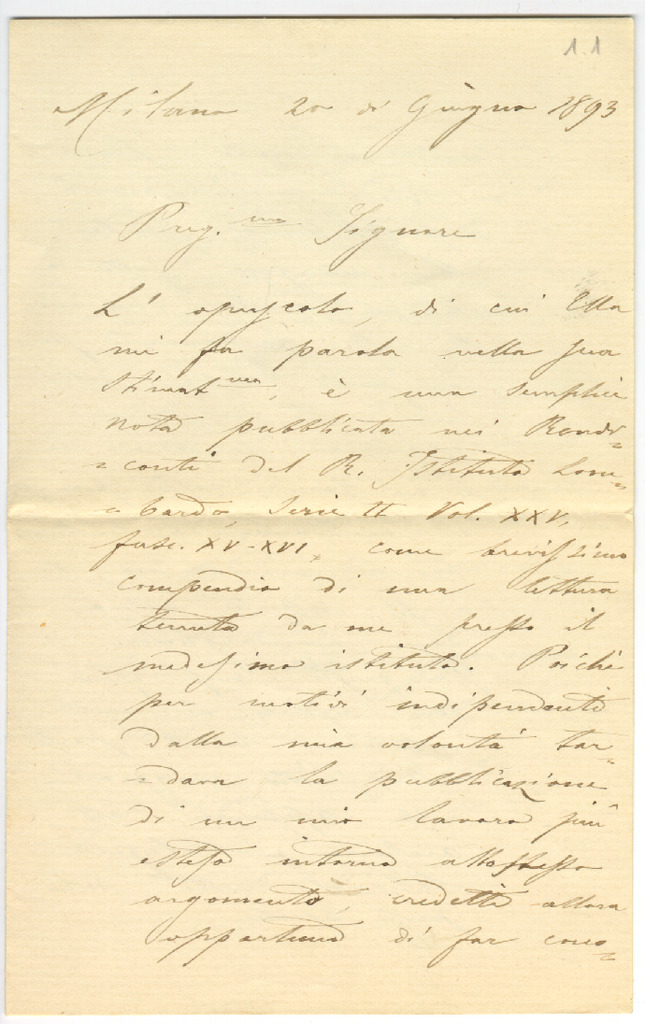 1.1
Milano 20 di Giugno 1893
Preg.mo Signore
L'opuscolo, di cui Ella
mi fa parola nella sua
stimatma, è una semplice
nota pubblicata nei Rendi=
=conti del R. Istituto Lom=
=bardo, Serie II Vol. XXV,
fasc. XV-XVI, come brevissimo
compendio di una lettura
tenuta da me presso il
medesimo istituto. Poichè
per motivi indipendenti
dalla mia volontà tar=
=dava la pubblicazione
di un mio lavoro più
esteso intorno allo stesso
argomento, credetti allora
opportuno di far cono=